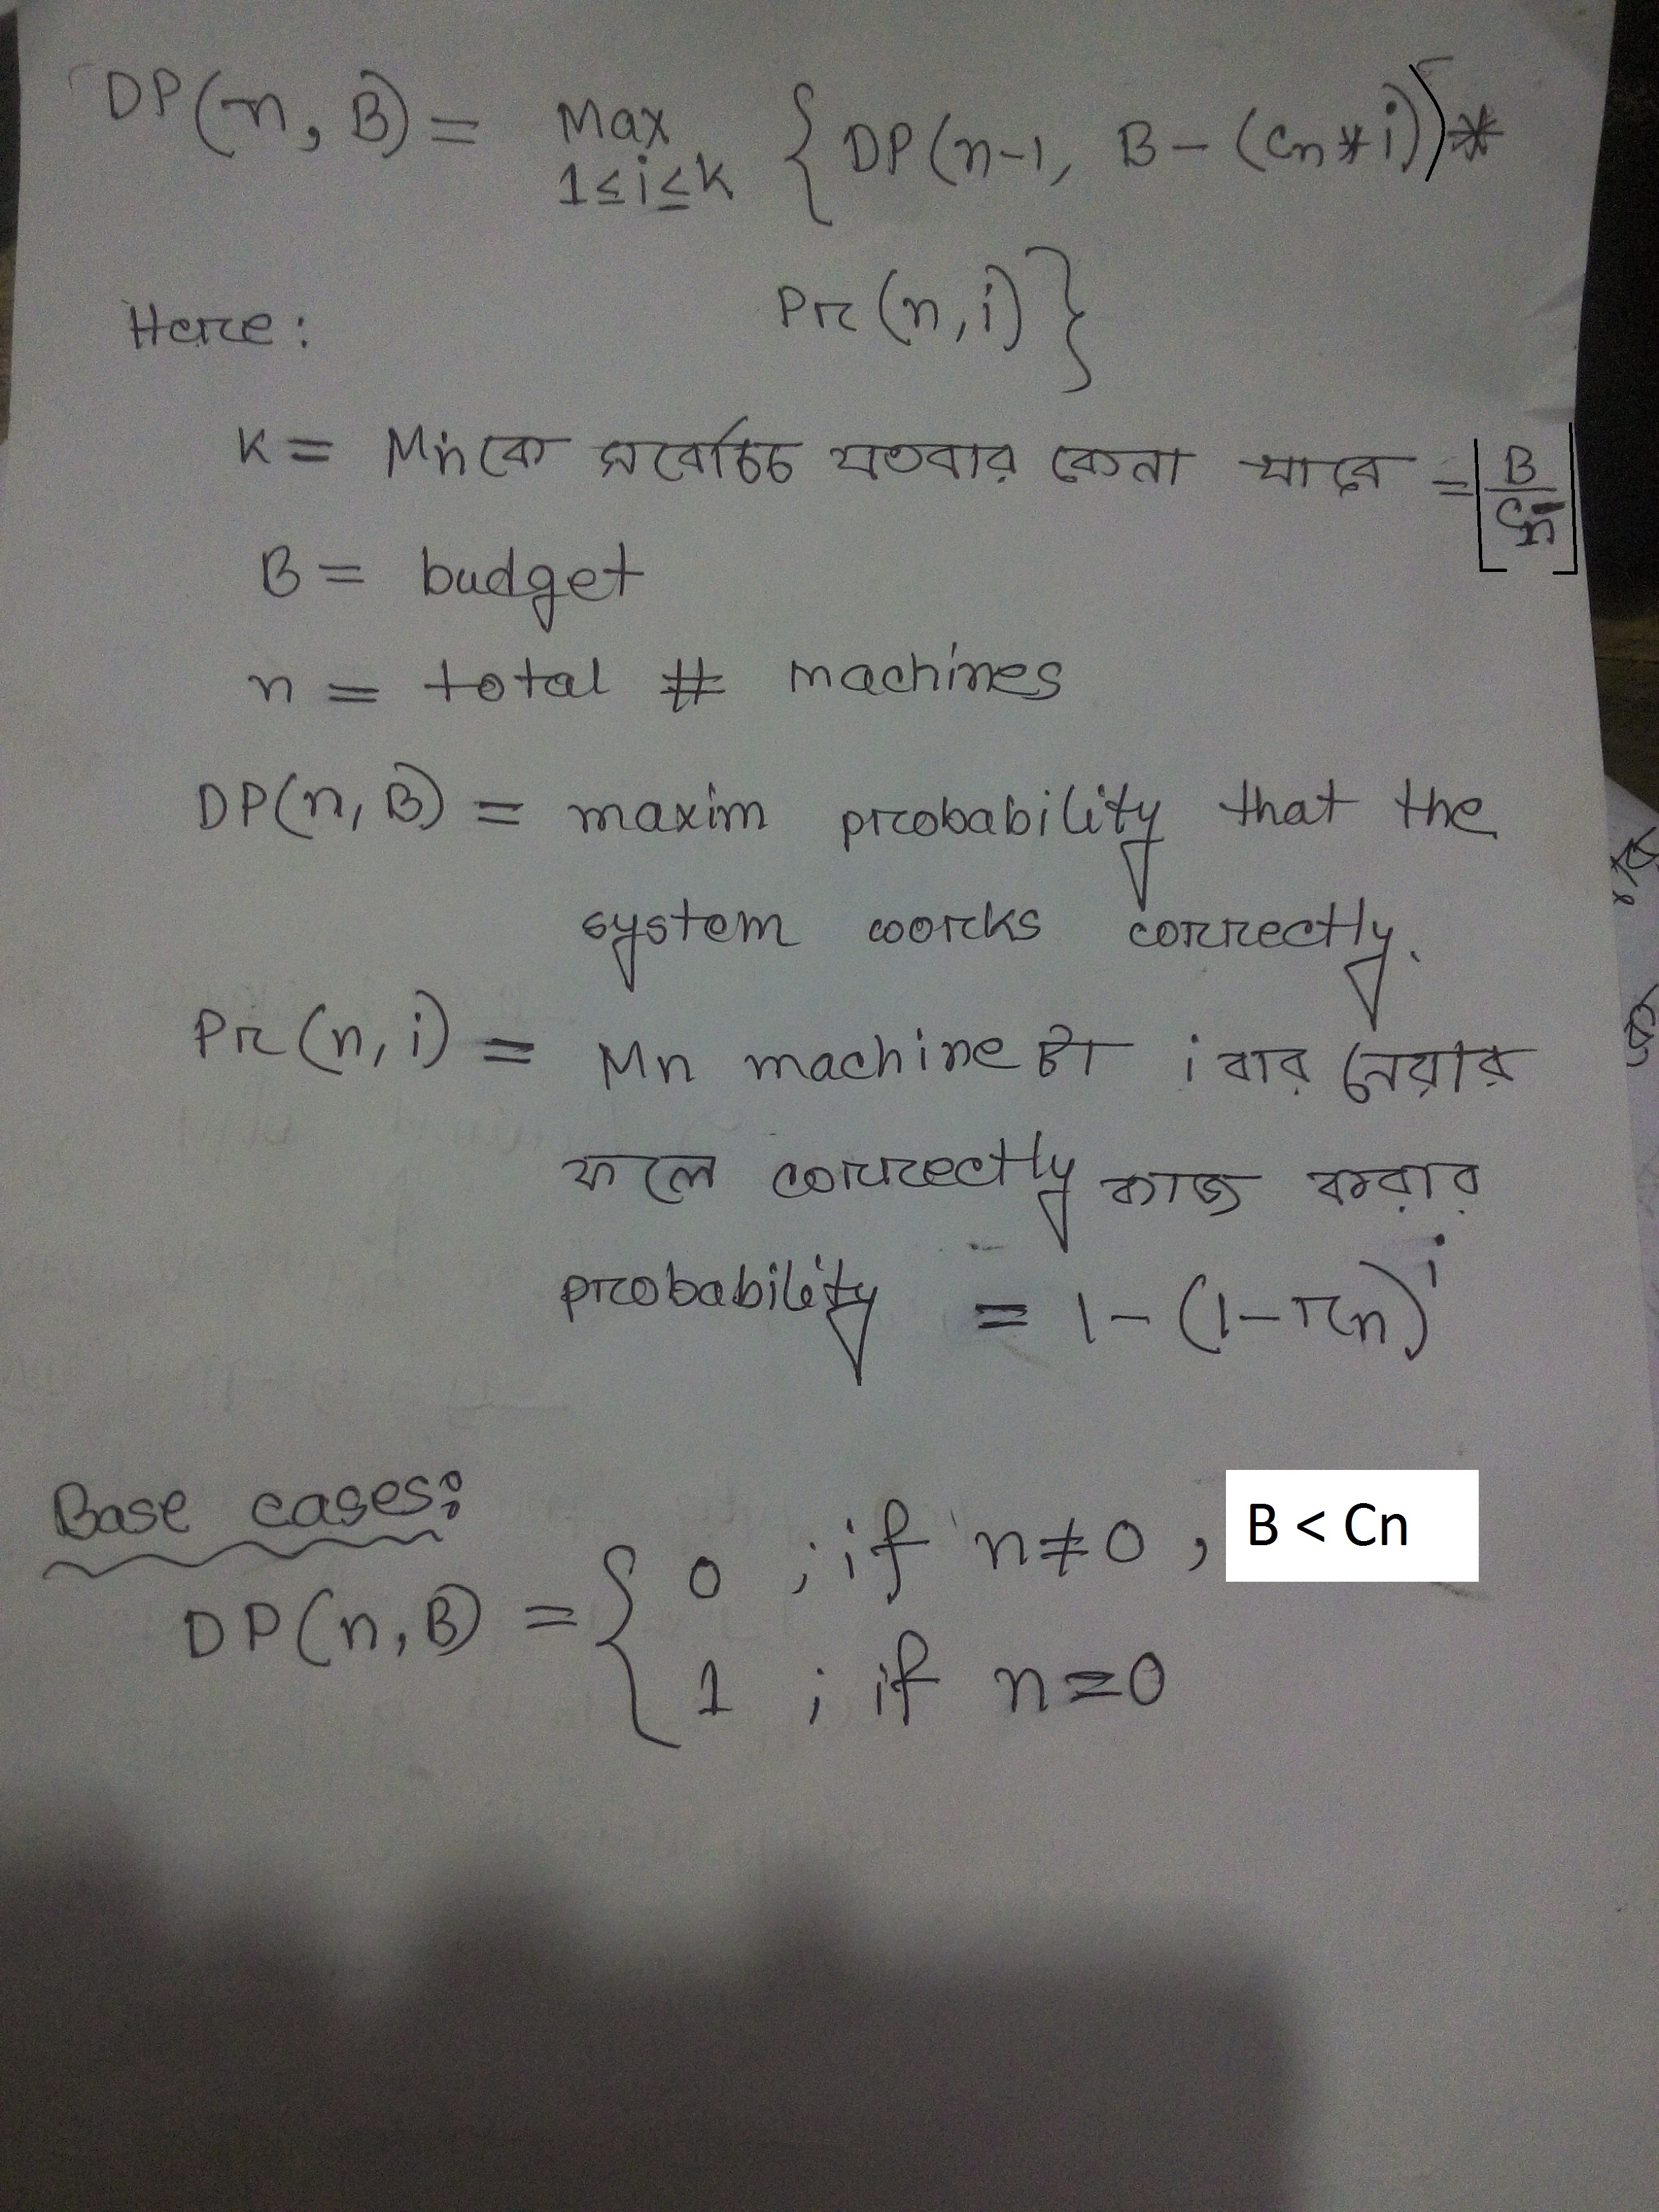 DP(n, B) = Max 1≤i≤k { DP(n-1, B - (Cn*i)) *
Pr(n, i) }
Here:
K = Mn কে সর্বোচ্চ যতবার কেনা যাবে = ⌊B/Cn⌋
B = budget
n = total # machines
DP(n, B) = maxim probability that the
system works correctly.
Pr(n, i) = Mn machine টা i বার নেয়ার
ফলে correctly কাজ করার
probability = 1 - (1 - rn)^i
Base cases:
DP(n, B) = { 0 ; if n ≠ 0 , B < Cn
1 ; if n = 0